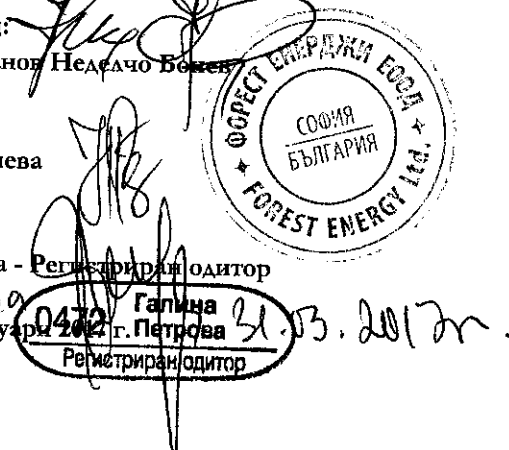 нов Неделчо Бонев
ФОРЕСТ ЕНЕРДЖИ ЕООД
СОФИЯ
БЪЛГАРИЯ
FOREST ENERGY Ltd.
ева
а - Регистриран одитор
уари 2017 г.
0472 Галина
Петрова
Регистриран одитор
31.03.2017г.